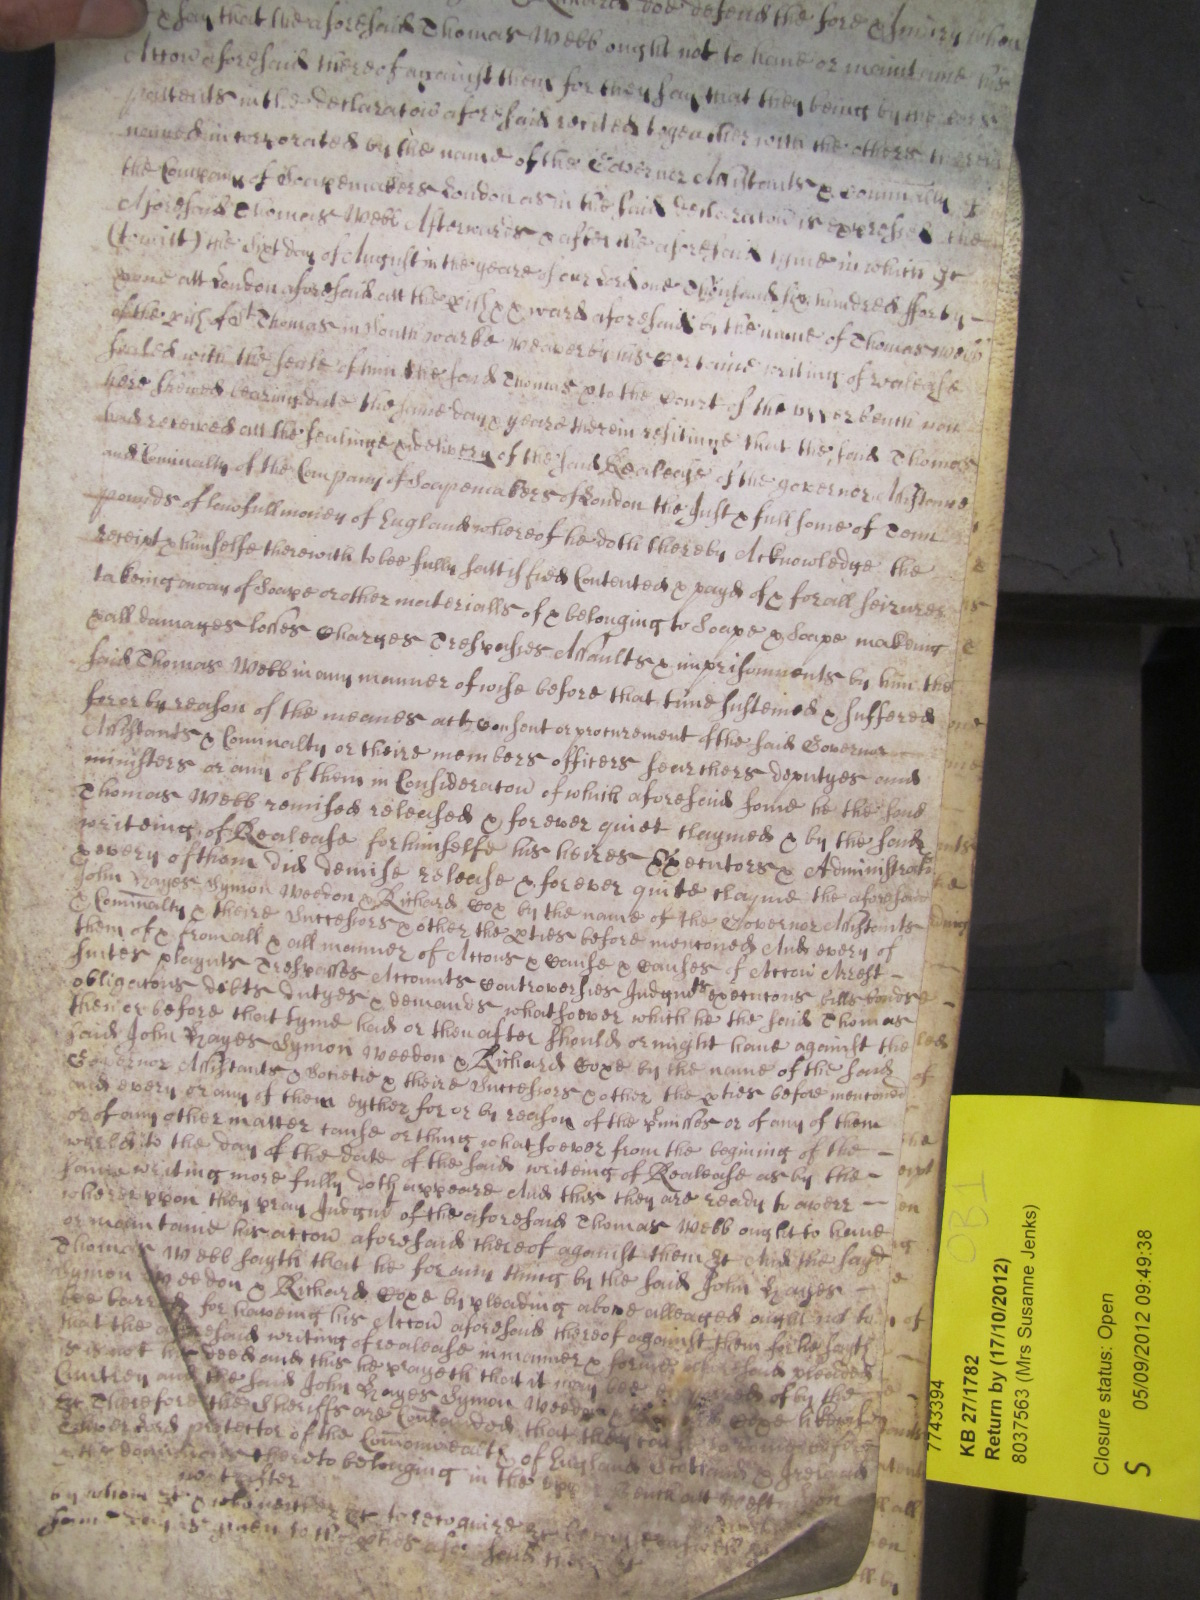 doe defend the force & Injury when
& say that the aforesaid Thomas Webb ought not to have or maintaine his
Accon aforesaid thereof against them for they say that they being by the lres
pattents in the declaracon aforesaid recited togeather with the others therein
named incorporated by the name of the Governor Assistants & Cominalty of
the Company of Soapemakers London as in the said declaracon is expressed the
Aforesaid Thomas Webb Afterwards & after the aforesaid tyme in which &c
(to witt) the sixt day of August in the yeare of our Lord one Thousand six hundred fforty
att London aforesaid att the pish & ward aforesaid by the name of Thomas Webb
of the pish of St Thomas in Southwarke weaver by his certaine writing of realease
sealed with the seale of him the said Thomas & to the Court of the upper bench now
here shewed bearing date the same day & yeare therein resitinge that the said Thomas
had received att the sealinge & delivery of the said Realease of the governor Assistants
and Cominalty of the Company of Soapemakers of London the Just & full some of Tenn
pounds of lawfull money of England whereof he doth thereby Acknowledge the
receipt & himselfe therewith to bee fully sattisfied Contented & payd of & for all seizures
takeing away of Soape or other materialls of & belonging to Soape & Soape makeing
& all damages losses Charges Trespasses Assaults & imprisonments by him the
said Thomas Webb in any manner of wise before that time susteined & suffered
for or by reason of the meanes act consent or procurement of the said Governor
Assistants & Cominalty or theire members officers searchers deputyes and
ministers or any of them in Consideracon of which aforesaid some he the said
Thomas Webb remised released & forever quiet claymed & by the said
writeing of Realease for himselfe his heires Executors & Administrat
& every of them did demise release & forever quite clayme the aforesaid
John Hayes Symon Weedon & Richard Cox by the name of the Governor Assistants
& Cominalty & theire Successors & other the pties before menconed And every of
them of & from all & all manner of Accons & cause & causes of Accon Arrest
suites playnts Trespasses Accounts Controversies Judgmts execucons bills bonds
obligacons debts dutyes & demands whatsoever which he the said Thomas
then or before that tyme had or then after should or might have against the
said John Hayes Symon Weedon & Richard Coxe by the name of the said
Governor Assistants & Societie & theire Successors & other the pties before mencoed
and every or any of them eyther for or by reason of the pmisses or of any of them
or of any other matter cause or thing whatsoever from the begining of the
world to the day of the date of the said writeing of Realease as by the
same writing more fully doth appeare And this they are ready to averr
whereuppon they pray Judgmt if the aforesaid Thomas Webb ought to have
or maintaine his accon aforesaid thereof against them &c And the sayd
Thomas Webb sayth that he for any thing by the said John Hayes
Symon Weedon & Richard Coxe by pleading above alleaged ought not to
bee barred for haveing his Accon aforesaid thereof against them for he sayth
that the aforesaid writing of realease in manner & forme above said pleaded
is not his deed and this he prayeth that it may bee enquired of by the
Cuntrey and the said John Hayes Symon Weedon & Richard Coxe likewise
&c Therefore the Sheriffs are Comanded that they cause to come before
Lord protector of the Comonwealth of England Scotland & Ireland
& the dominions thereto belonging in the upper bench att Westminster
next after
by whom &c & who neither &c to recognize &c because aswell &c
same day is given to the pties aforesaid there &c
7743394
KB 27/1782
Return by (17/10/2012)
8037563 (Mrs Susanne Jenks)
Closure status: Open
S 05/09/2012 09:49:38
OB1